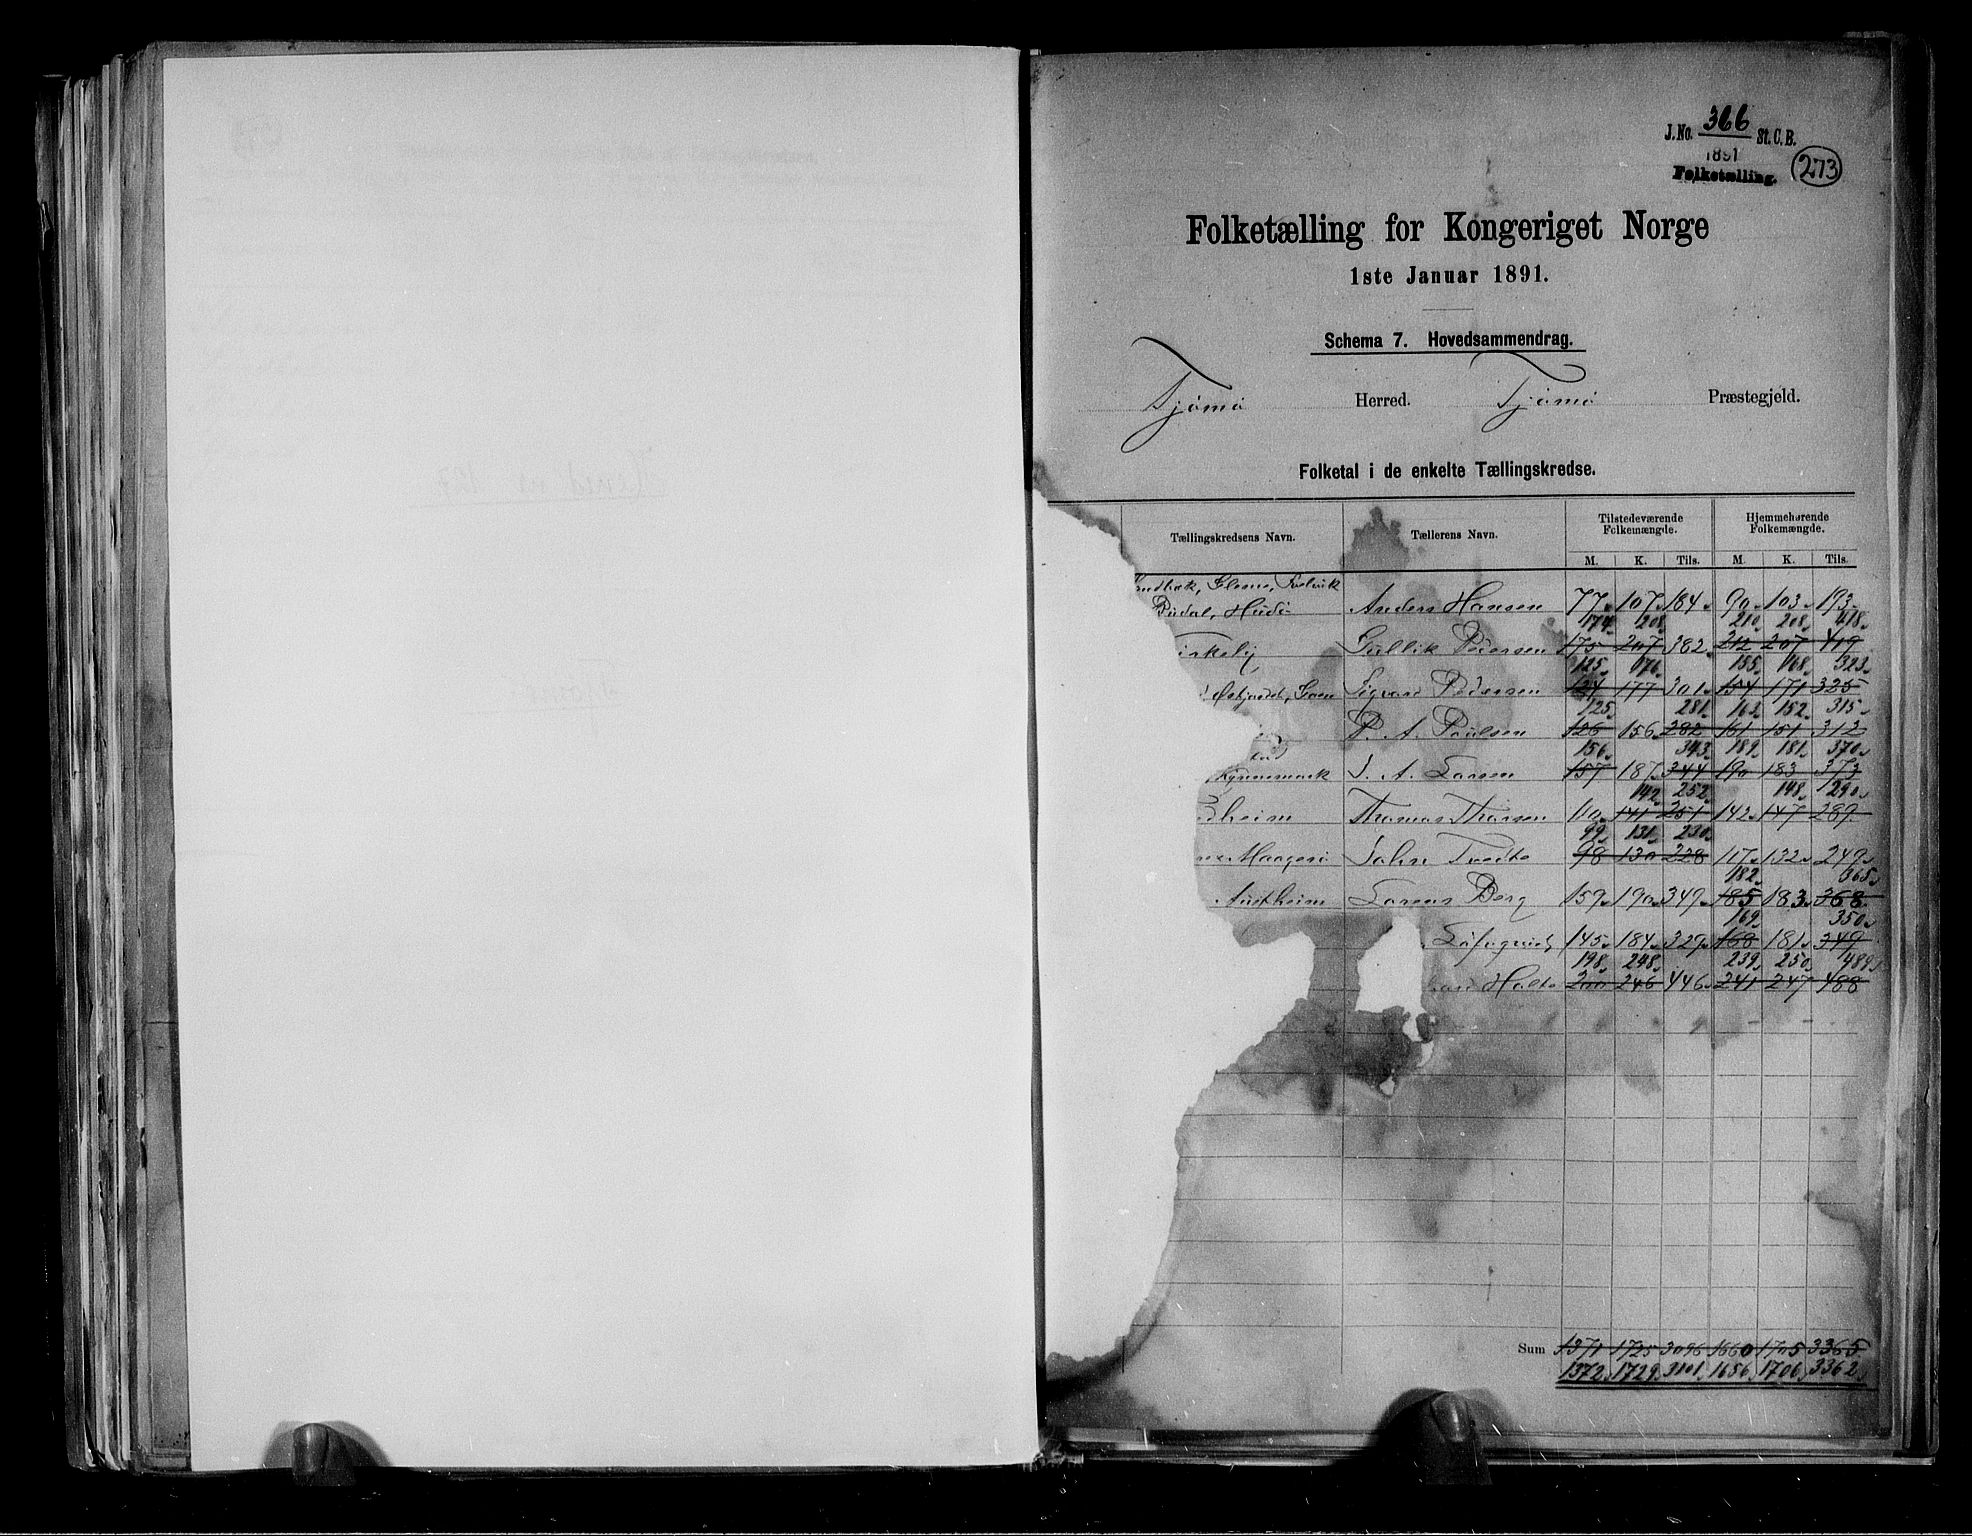 J. No. 366 St. C. B.
1891
Folketælling. 273
Folketælling for Kongeriget Norge
1ste Januar 1891.
Schema 7. Hovedsammendrag.
Tjømø Herred. Tjømø Præstegjeld.
Folketal i de enkelte Tællingskredse.
Tællingskredsens Navn. Tællerens Navn. Tilstedeværende Folkemængde. Hjemmehørende Folkemængde.
M. K. Tils. M. K. Tils.
Glome,
Budal, Hudø Anders Hansen 77 107 184 90 103 193
174 208 210 208 418
irkeby Gullik Pedersen 175 207 382 212 207 419
125 176 155 168 323
Sigvard Pedersen 124 177 301 154 171 325
125 281 163 152 315
P. A. Paulsen 126 156 282 161 151 312
156 343 189 181 370
A. Larsen 157 187 344 190 183 373
142 252 148 290
dheim Thomas Thorsen 110 141 251 142 147 289
99 131 230
Maagerø John Tvedte 98 130 228 117 132 249
182 365
Austheim Larens Berg 159 190 349 185 183 368
169 350
145 184 329 168 181 349
198 248 239 250 489
Holte 200 246 446 241 247 488
Sum 1371 1725 3096 1660 1705 3365
1372 1729 3101 1656 1706 3362